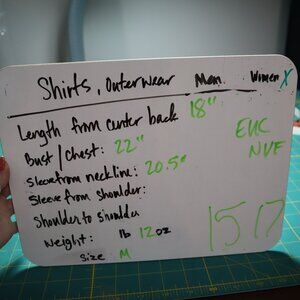 Shirts, outerwear Men Women X
Length from center back 18"
Bust/Chest: 22"
EUC
NVF
Sleeve from neckline: 20.5"
Sleeve from shoulder:
Shoulder to shoulder
Weight: lb 12 oz
1517
Size M